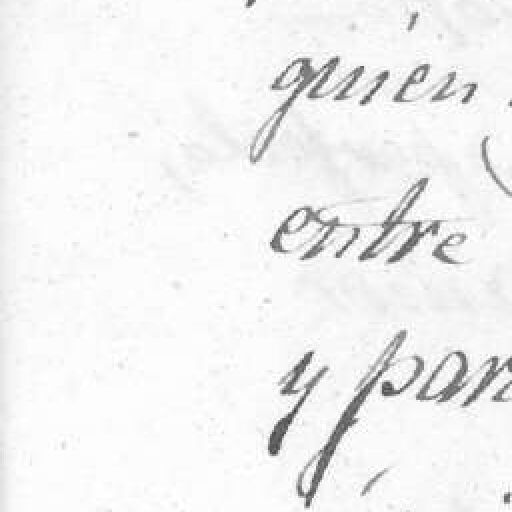 quien
entre
y par